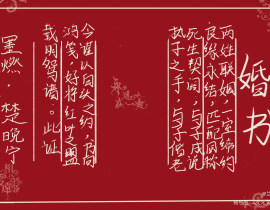 婚书
两姓联姻，一堂缔约
良缘永结，匹配同称
死生契阔，与子成说
执子之手，与子偕老
今谨以白头之约，书向
鸿笺，好将红叶之盟
载明鸳谱。此证
墨燃．楚晚宁